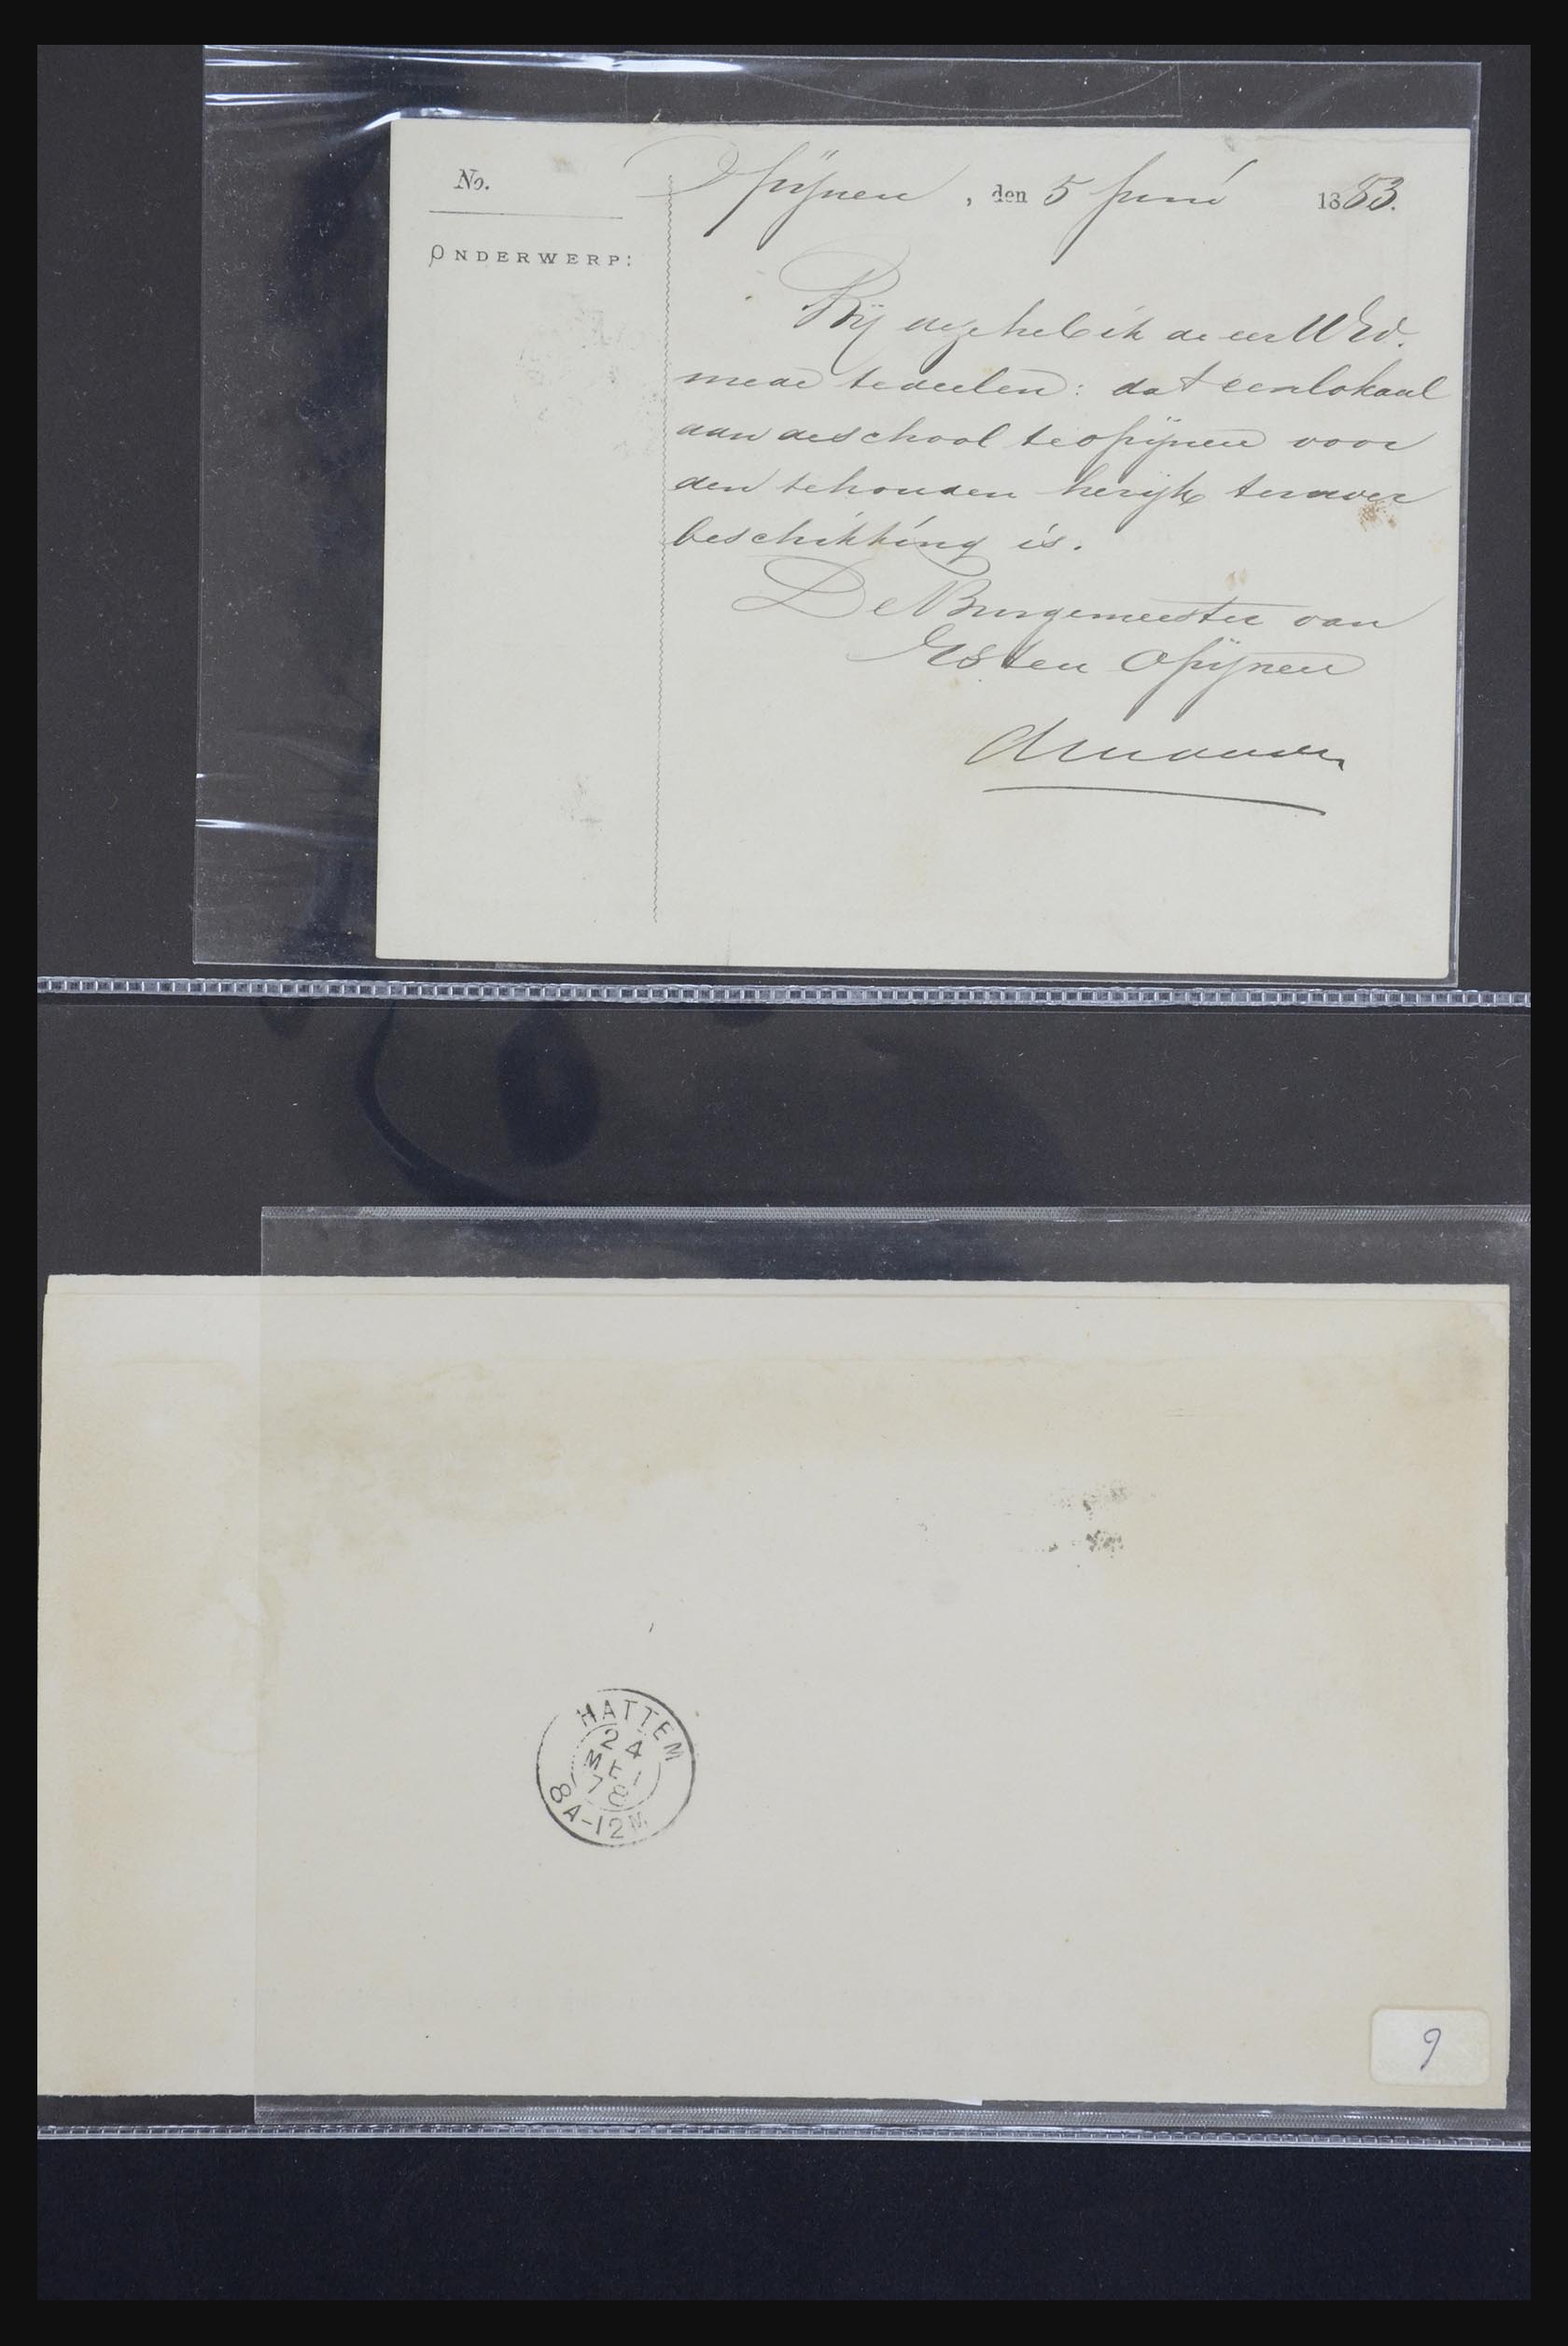 No.
Opijnen, den 5 Juni 1883.
ONDERWERP:
Bij deze heb ik de eer UEd.
mede te deelen: dat een lokaal
aan de school te opijnen voor
den te houden herijk ter uwer
beschikking is.
De Burgemeester van
Est en Opijnen
HATTEM
24
MEI
78
8A-12M
9